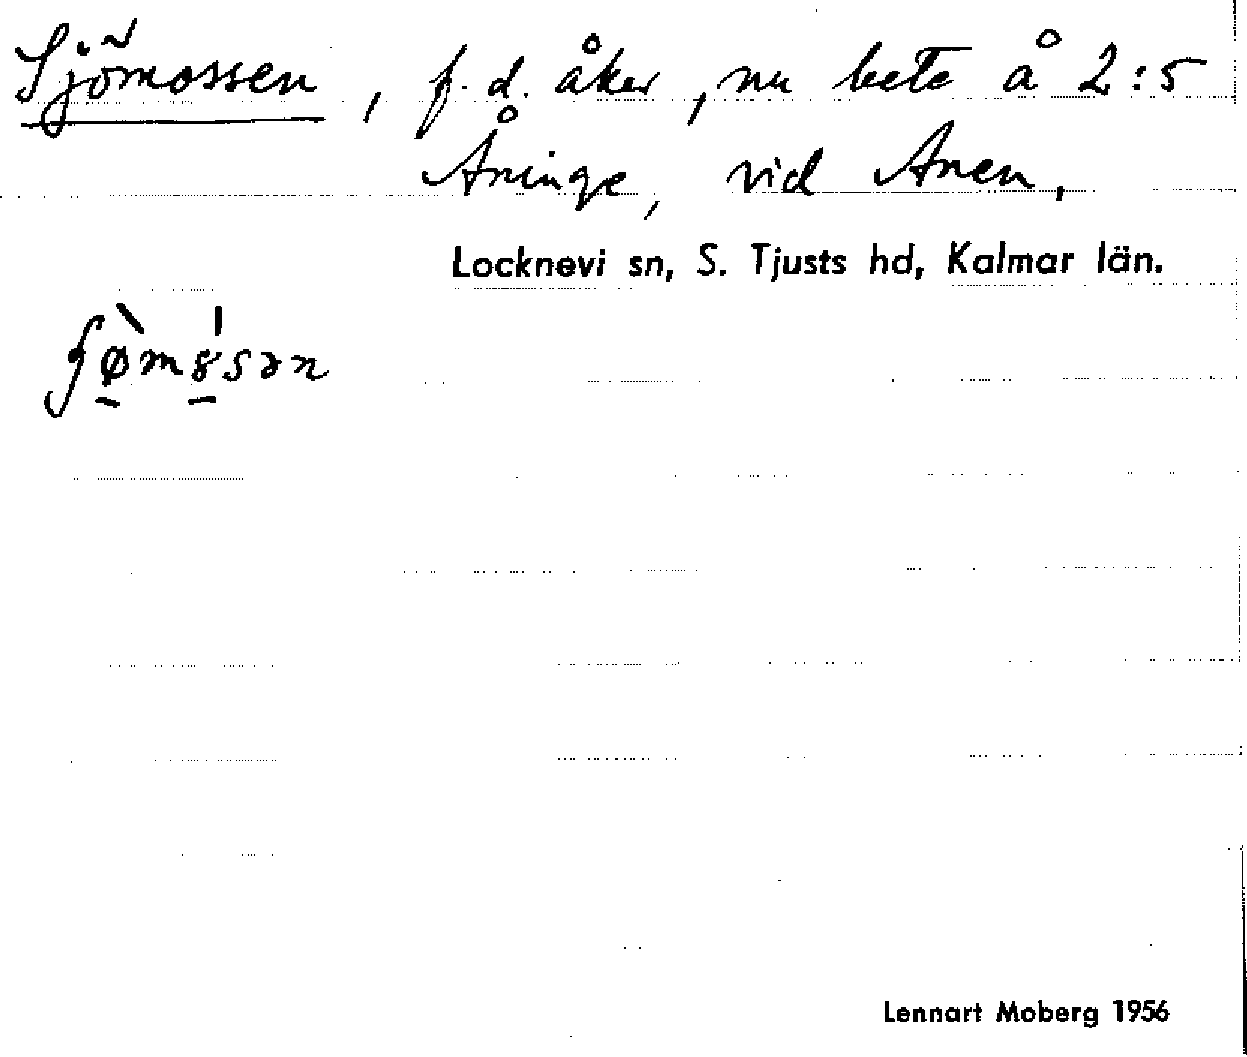 Sjömossen, f.d. åker, nu bete å 2:5
Åninge, vid Anen,
Locknevi sn, S. Tjusts hd, Kalmar län.
Lennart Moberg 1956